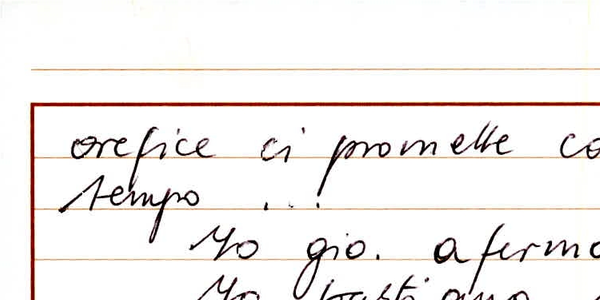 orefice ci promette co
tempo ...
Yo gio. afermo
Yo bastiano